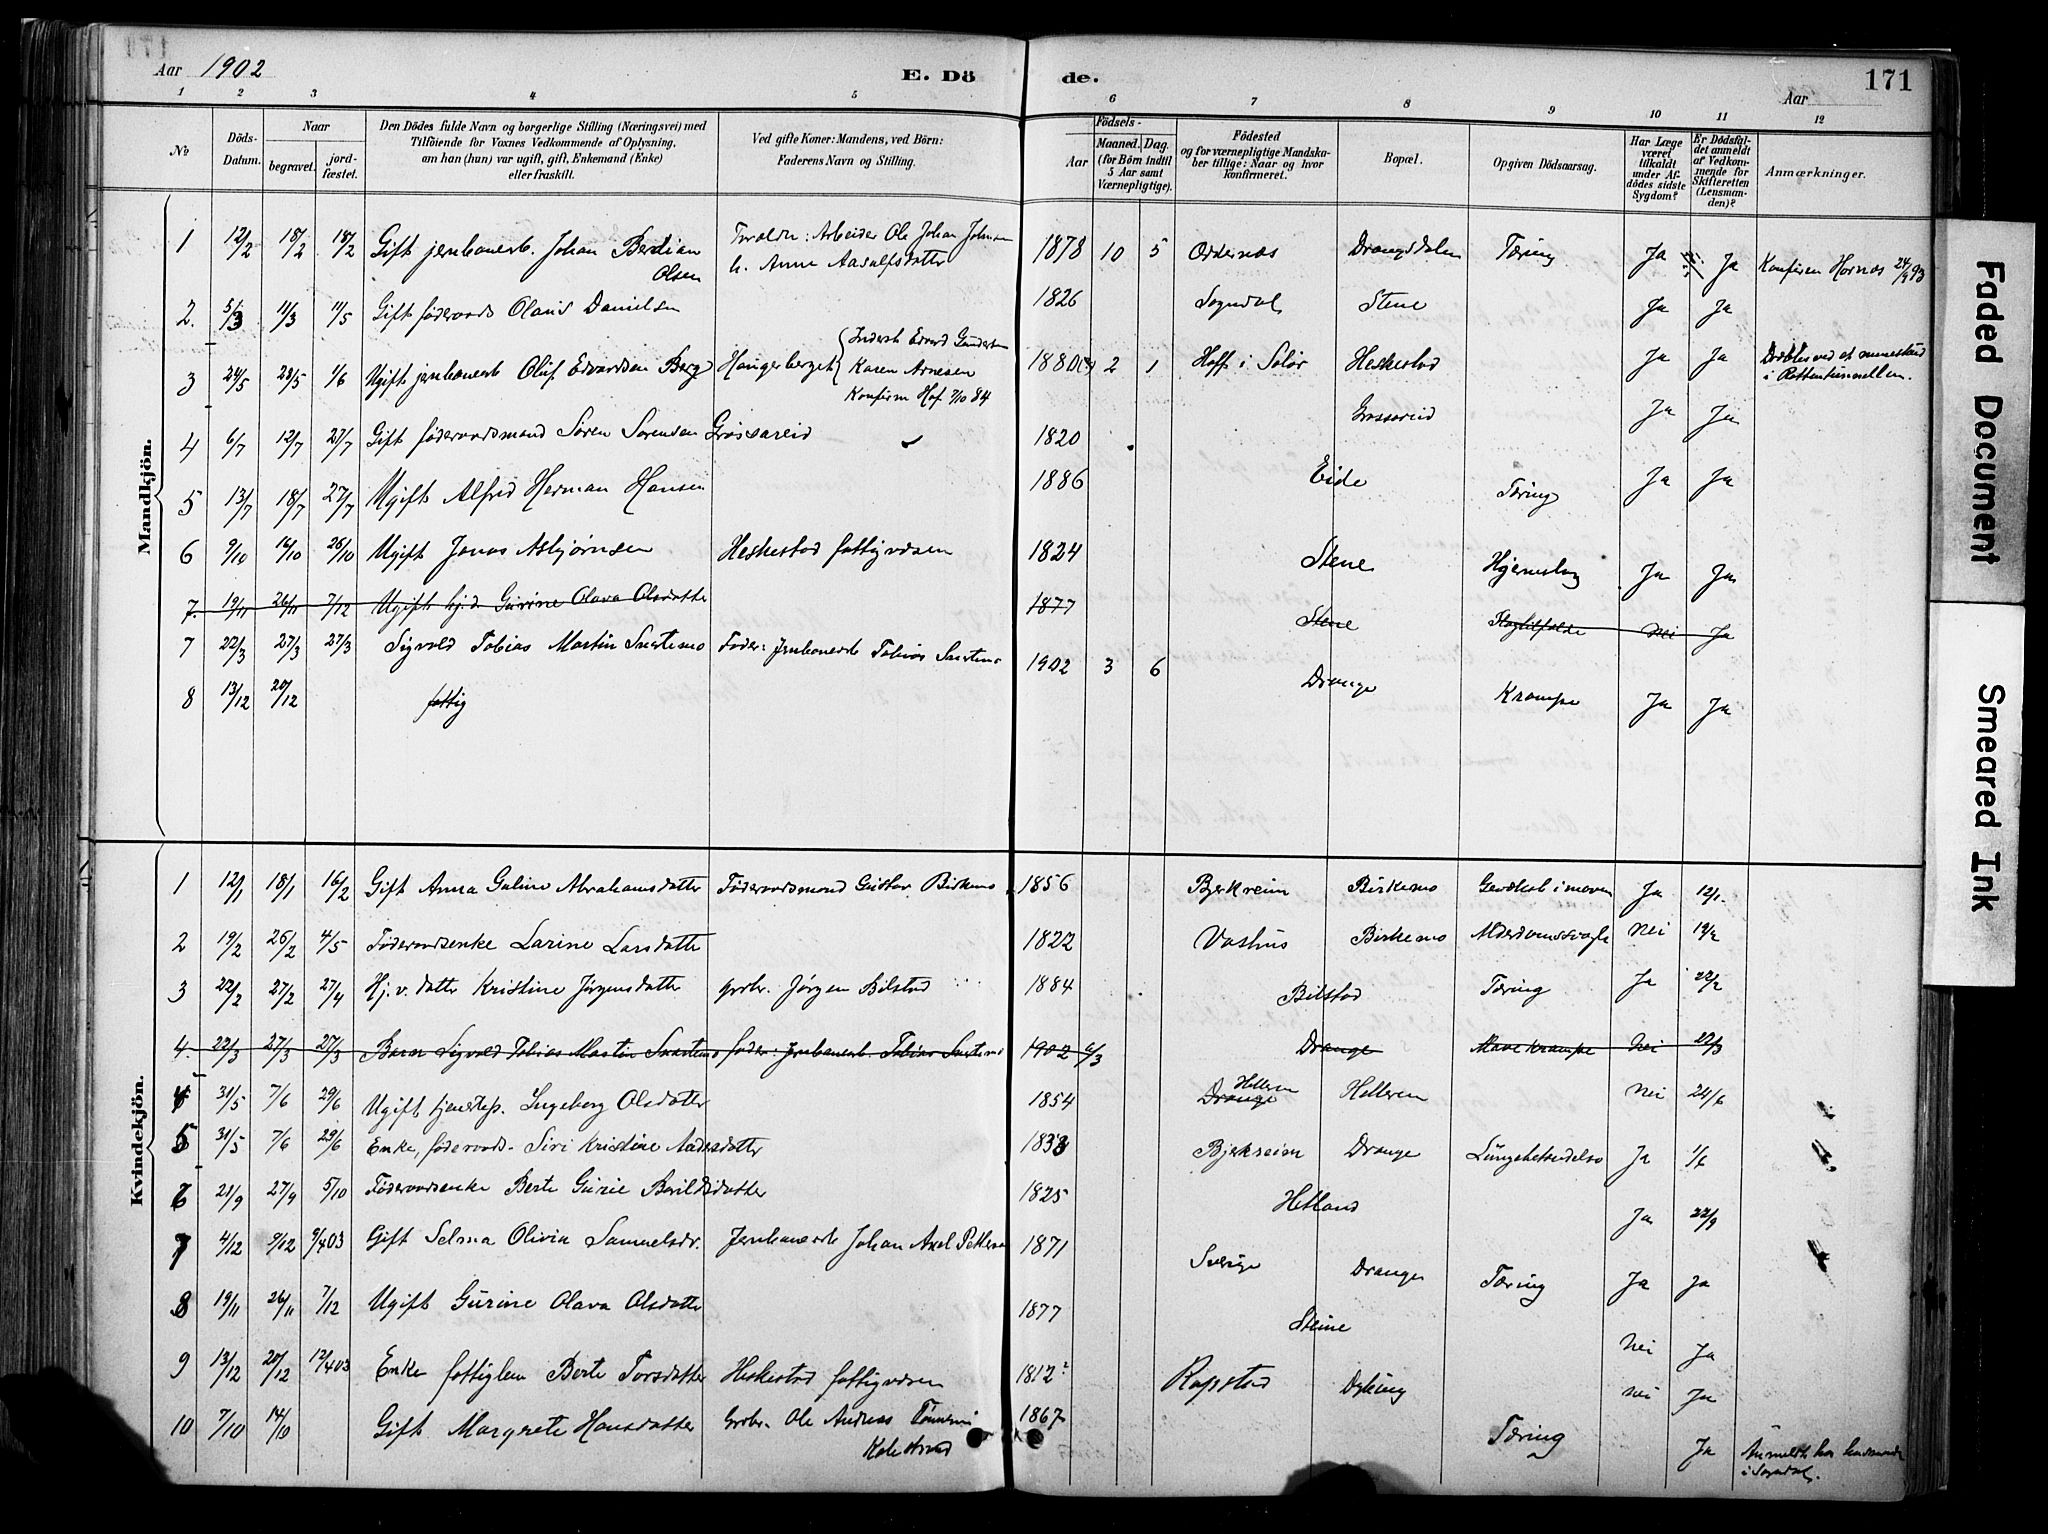 Aar 1902
E. Döde.
Aar
171
1 2 3 4 5 6 7 8 9 10 11 12
№
Döds-Datum.
Naar
begravet.
jord-fæstet.
Den Dödes fulde Navn og borgerlige Stilling (Næringsvei) med
Tilföiende for Voxnes Vedkommende af Oplysning,
om han (hun) var ugift, gift, Enkemand (Enke)
eller fraskilt.
Ved gifte Koner: Mandens, ved Börn:
Faderens Navn og Stilling.
Födsels-
Aar
Maaned. Dag.
(for Börn indtil
5 Aar samt
Værnepligtige).
Födested
og for værnepligtige Mandska-
ber tillige: Naar og hvor
konfirmeret.
Bopæl.
Opgiven Dödsaarsag.
Har Læge
været
tilkaldt
under Af-
dödes sidste
Sygdom?
Er Dödsfal-
det anmeldt
af Vedkom-
mende for
Skifteretten
(Lensman-
den)?
Anmærkninger.
Mandkjön.
1 12/2 18/2 18/2 Gift jernbanearb. Johan Bertian Olsen Foraldre: Arbeider Ole Johan Johnsen h. Anne Aasulfsdatter 1878 10 5 Oddernæs Drangsdalen Tæring Ja Ja Konfirm Hornæs 24/9 93
2. 5/3 11/3 11/5 Gift föderaads Olaus Danielsen 1826 Sogndal Stene Ja Ja
3 24/5 28/5 1/6 Ugift jernbanearb Oluf Edvardsen Berg Haugerberget { Inderst Edvard Gundersen Karen Arnesen Konfirm Hof 7/10 84 1880 2 1 Hoff i Solör Heskestad Ja Ja Dræbtes ved et minestkud i Rottentunnellen.
4 6/7 12/7 27/7 Gift föderaadsmand Sören Sörensen Grössareid 1820 Grossareid Ja Ja
5 13/7 18/7 27/7 Ugift Alfred Herman Hansen 1886 Eide Tæring Ja Ja
6 9/10 16/10 26/10 Ugift Jonas Asbjørnsen Heskestad fattigvæsen 1824 Stene Hjerneslag Ja Ja
7. 19/11 26/11 7/12 Ugift hj.d. Gurine Olava Olsdatter 1877 Stene Slagtilfælde Nei Ja
7 22/3 27/3 27/3 Sigvald Tobias Martin Svartemo Fader: Jernbanearb Tobias Svartemo 1902 3 6 Drange Krampe Ja Ja
8 13/12 20/12 fattig
Kvindekjön.
1 12/1 18/1 16/2 Gift Anna Galine Abrahamsdatter Föderaadsmand Gustav Birkemo 1856 Bjerkreim Birkemo Gevækst i maven Ja 12/1.
2 19/2 26/2 4/5 Föderaadsenke Larine Larsdatter 1822 Vashus Birkemo Alderdomssvagh Nei 19/2
3 22/2 27/2 27/4 Hj.v. datter Kristine Jörgensdatter grbr. Jörgen Bilstad 1884 Bilstad Tæring Ja 22/2
4. 22/3 27/3 27/3 Barn Sigvald Tobias Martin Svartemo fader: Jernbanearb Tobias Svartemo 1902 6/3 Drange Mavekrampe Nei 22/3
4 31/5 7/6 29/6 Ugift tjenstep. Ingeborg Olsdatter 1854 Drange Helleren Helleren Nei 24/6
5 31/5 7/6 29/6 Enke, föderaads- Siri Kristine Andersdatter 1833 Bjerkreim Drange Lungebetændelse Ja 1/6
6 21/9 27/9 5/10 Föderaadsenke Berte Gurie Bærildsdatter 1825 Hetland Ja 22/9
7 4/12 9/12 9/4 03 Gift Selma Olivia Samuelsdr. Jernbanearb Johan Axel Petterson 1871 Sverige Drange Tæring Ja Ja
8 19/11 26/11 7/12 Ugift Gurine Olava Olsdatter 1877 Steine Nei Ja
9 13/12 20/12 12/4 03 Enke fattiglem Berte Torsdatter Heskestad fattigvæsen 1812? Rapstad Dybing Nei Ja
10 7/10 14/10 Gift Margrete Hansdatter Grbr. Ole Andreas Tönnesen 1867 Tæring Ja Anmeldt hos lensmanden i Sogndal.
Faded Document
Smeared Ink